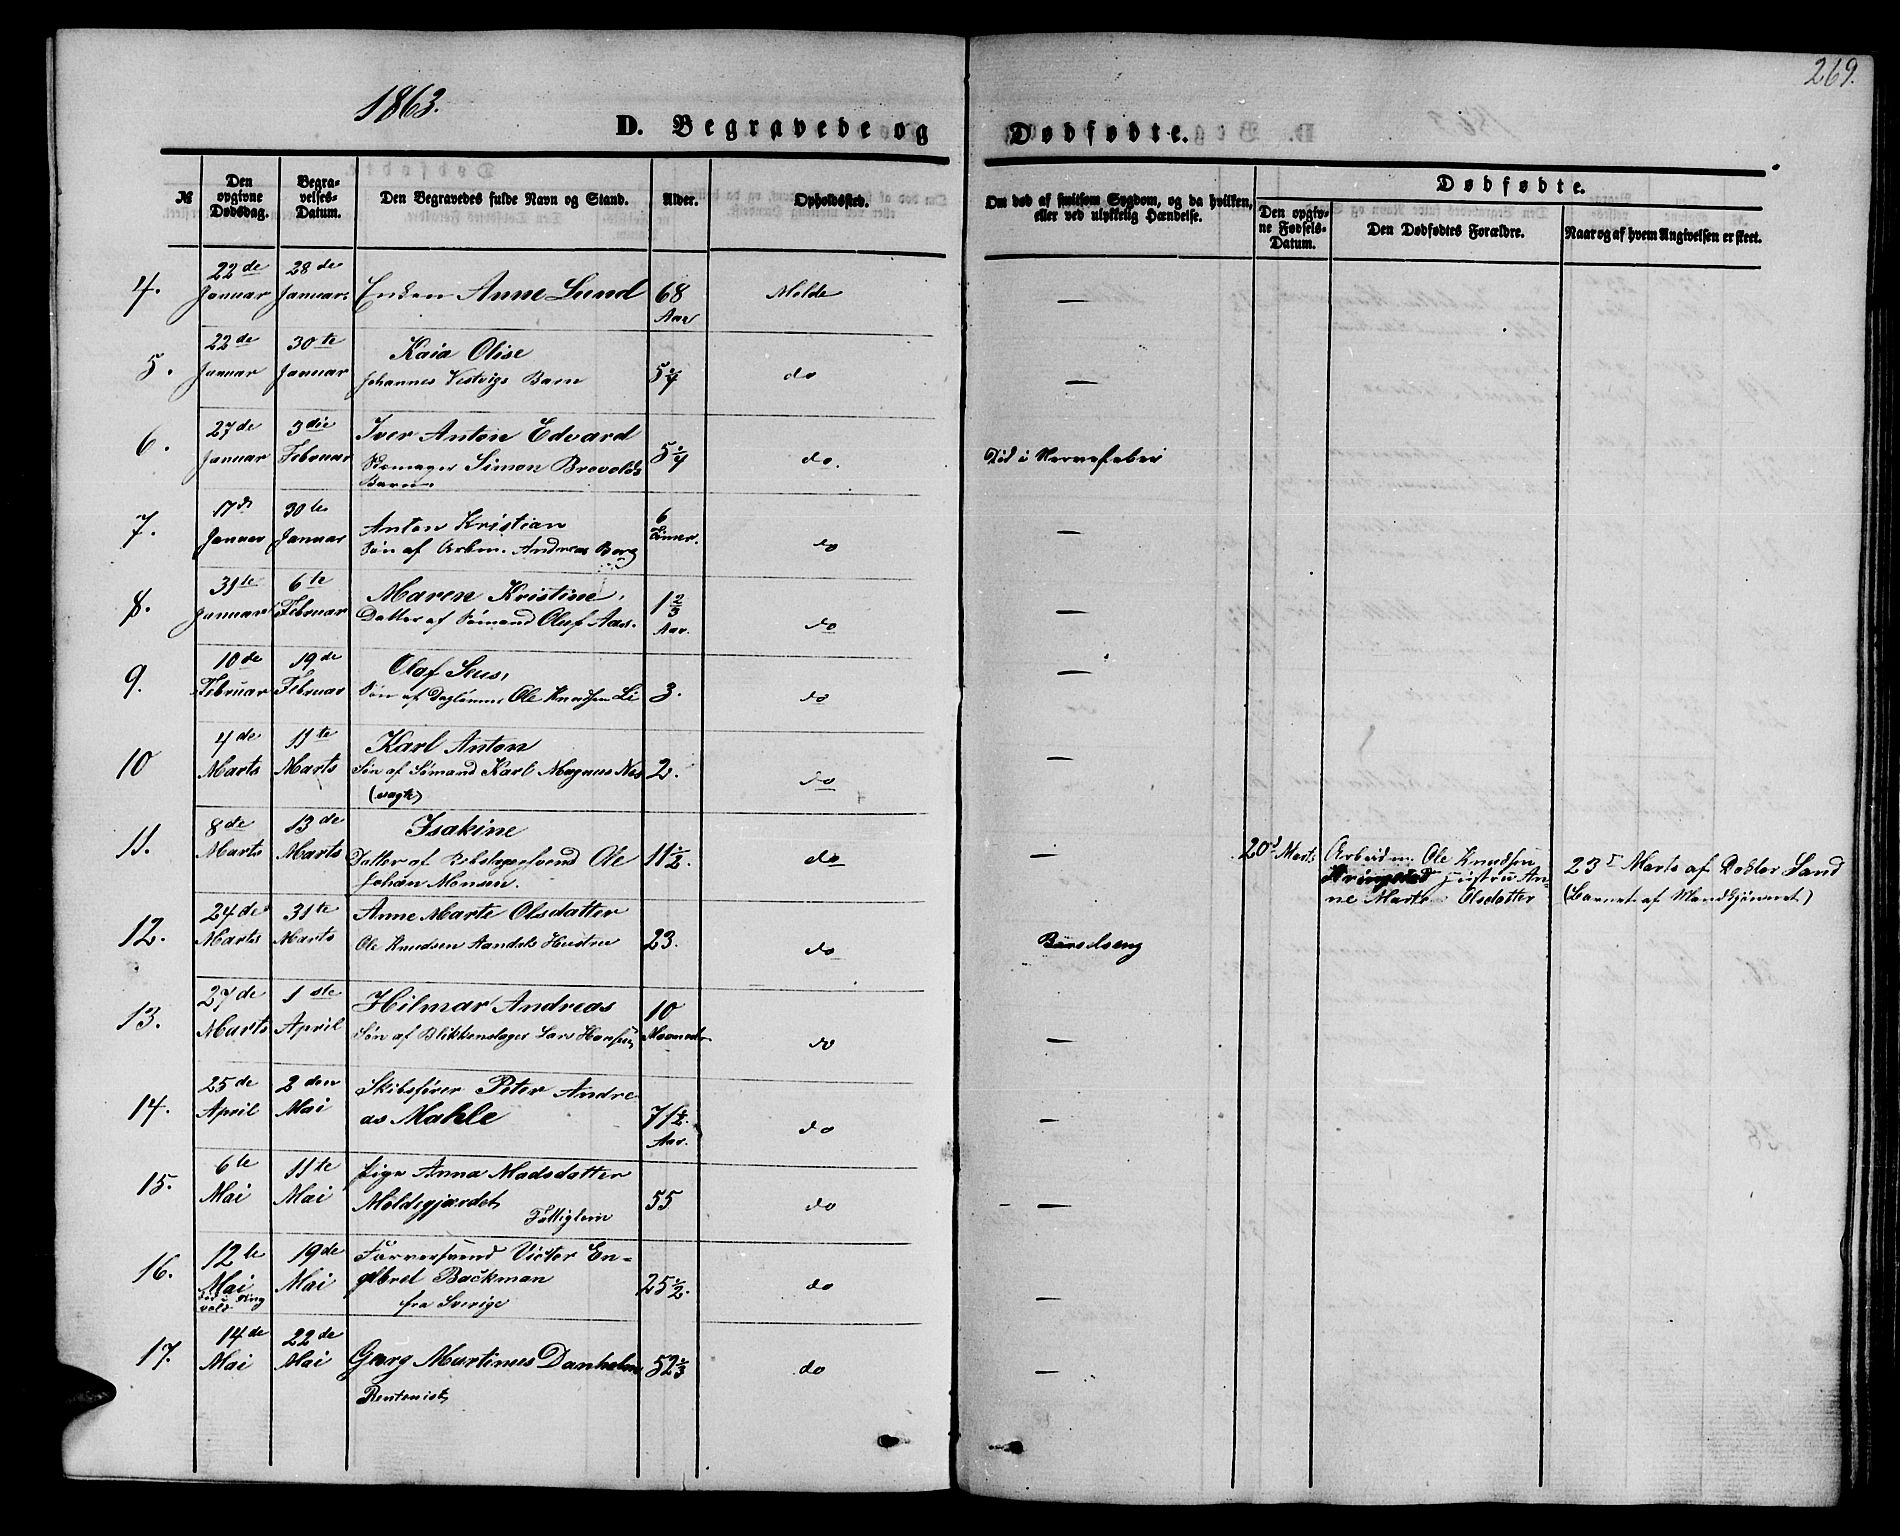 269.
1863.
D. Begravede og Dødfødte.
№
Den opgivne Dødsdag.
Begravelses-Datum.
Den Begravedes fulde Navn og Stand.
Alder.
Opholdssted.
Om død af smitsom Sygdom, og da hvilken, eller ved ulykkelig Hændelse.
Dødfødte.
Den opgivne Fødsels-Datum.
Den Dødfødtes Forældre.
Naar og af hvem Angivelsen er skeet.
4. 22de Januar 28de Januar Enken Anne Lund 68 Aar Molde —
5. 22de Januar 30te Januar Kaia Olise
Johannes Vestvigs Barn 5/4 do —
6. 27de Januar 3die Februar Iver Anton Edvard
Skomager Simon Brevolds
Barn. 5/4 do. Død i Nervefeber
7. 17d Januar 30te Januar Anton Kristian
Søn af Arbm. Andreas Berg 6 Timer. do —
8. 31te Januar 6te Februar Maren Kristine,
Datter af Sømand Oluf Aas. 1 2/3 Aar. do —
9. 10de Februar 19de Februar Olaf
Søn af Ole Knudsen Li 3. do —
10 4de Marts 11te Marts Karl Anton
Søn af Sømand Karl Magnus Nes
(vagte) 2. do —
11. 8de Marts 13de Marts Isakine
Datter af Ole
Johan Monsen. 11 1/2. do —
20d Marts Arbeidm. Ole Knudsen
Hustru An-
ne Marte Olsdatter
23de Marts af Doktor Sand
(Barnet af Mandkjønnet)
12. 24de Marts 31te Marts Anne Marte Olsdatter
Ole Knudsen Hustru 23. do Barselseng
13. 27de Marts 1ste April Hilmar Andreas
Søn af Blikkenslager Lars Hansen 10 Maaneder do —
14. 25de April 2den Mai Skibsfører Peter Andre
as Mahle 71 1/2. Aar. do —
15. 6te Mai 11te Mai Pige Anna Madsdatter
Moldegjærdet,
Fattiglem 55 do —
16. 12te Mai 19de Mai Farversvend Victor En-
gelbret Backman
fra Sverige 25 1/2. do —
17. 14de Mai 22de Mai Georg Martinus Danholm
Rentenist, 52 1/3 do —